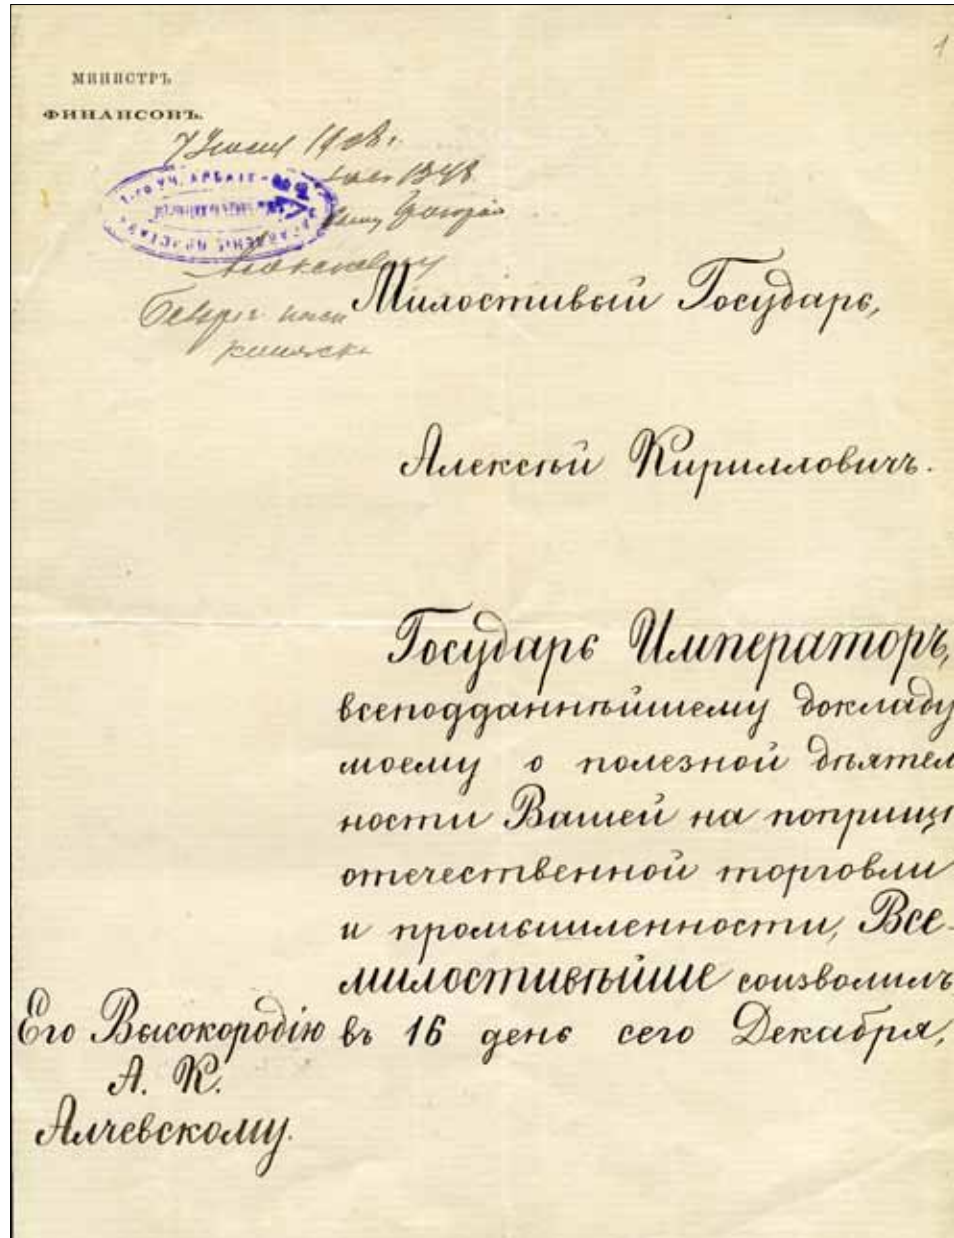 1
МИНИСТРЪ
ФИНАНСОВЪ.
1908 г.
1348
Милостивый Государь,
Алексѣй Кирилловичъ.
Государь Императоръ,
всеподданнѣйшему докладу
моему о полезной дѣятел
ности Вашей на поприщѣ
отечественной торговли
и промышленности, Все-
милостивѣйше соизволилъ
въ 16 день сего Декабря,
Его Высокородію
А. К.
Алчевскому.